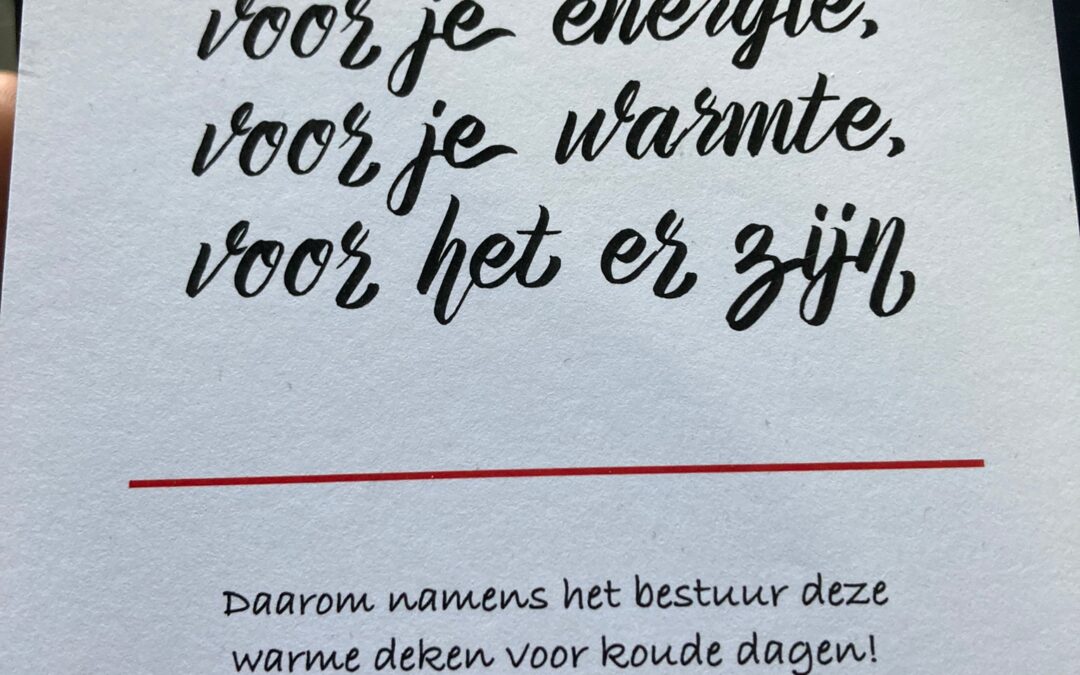 voor je energie,
voor je warmte,
voor het er zijn
Daarom namens het bestuur deze
warme deken voor koude dagen!